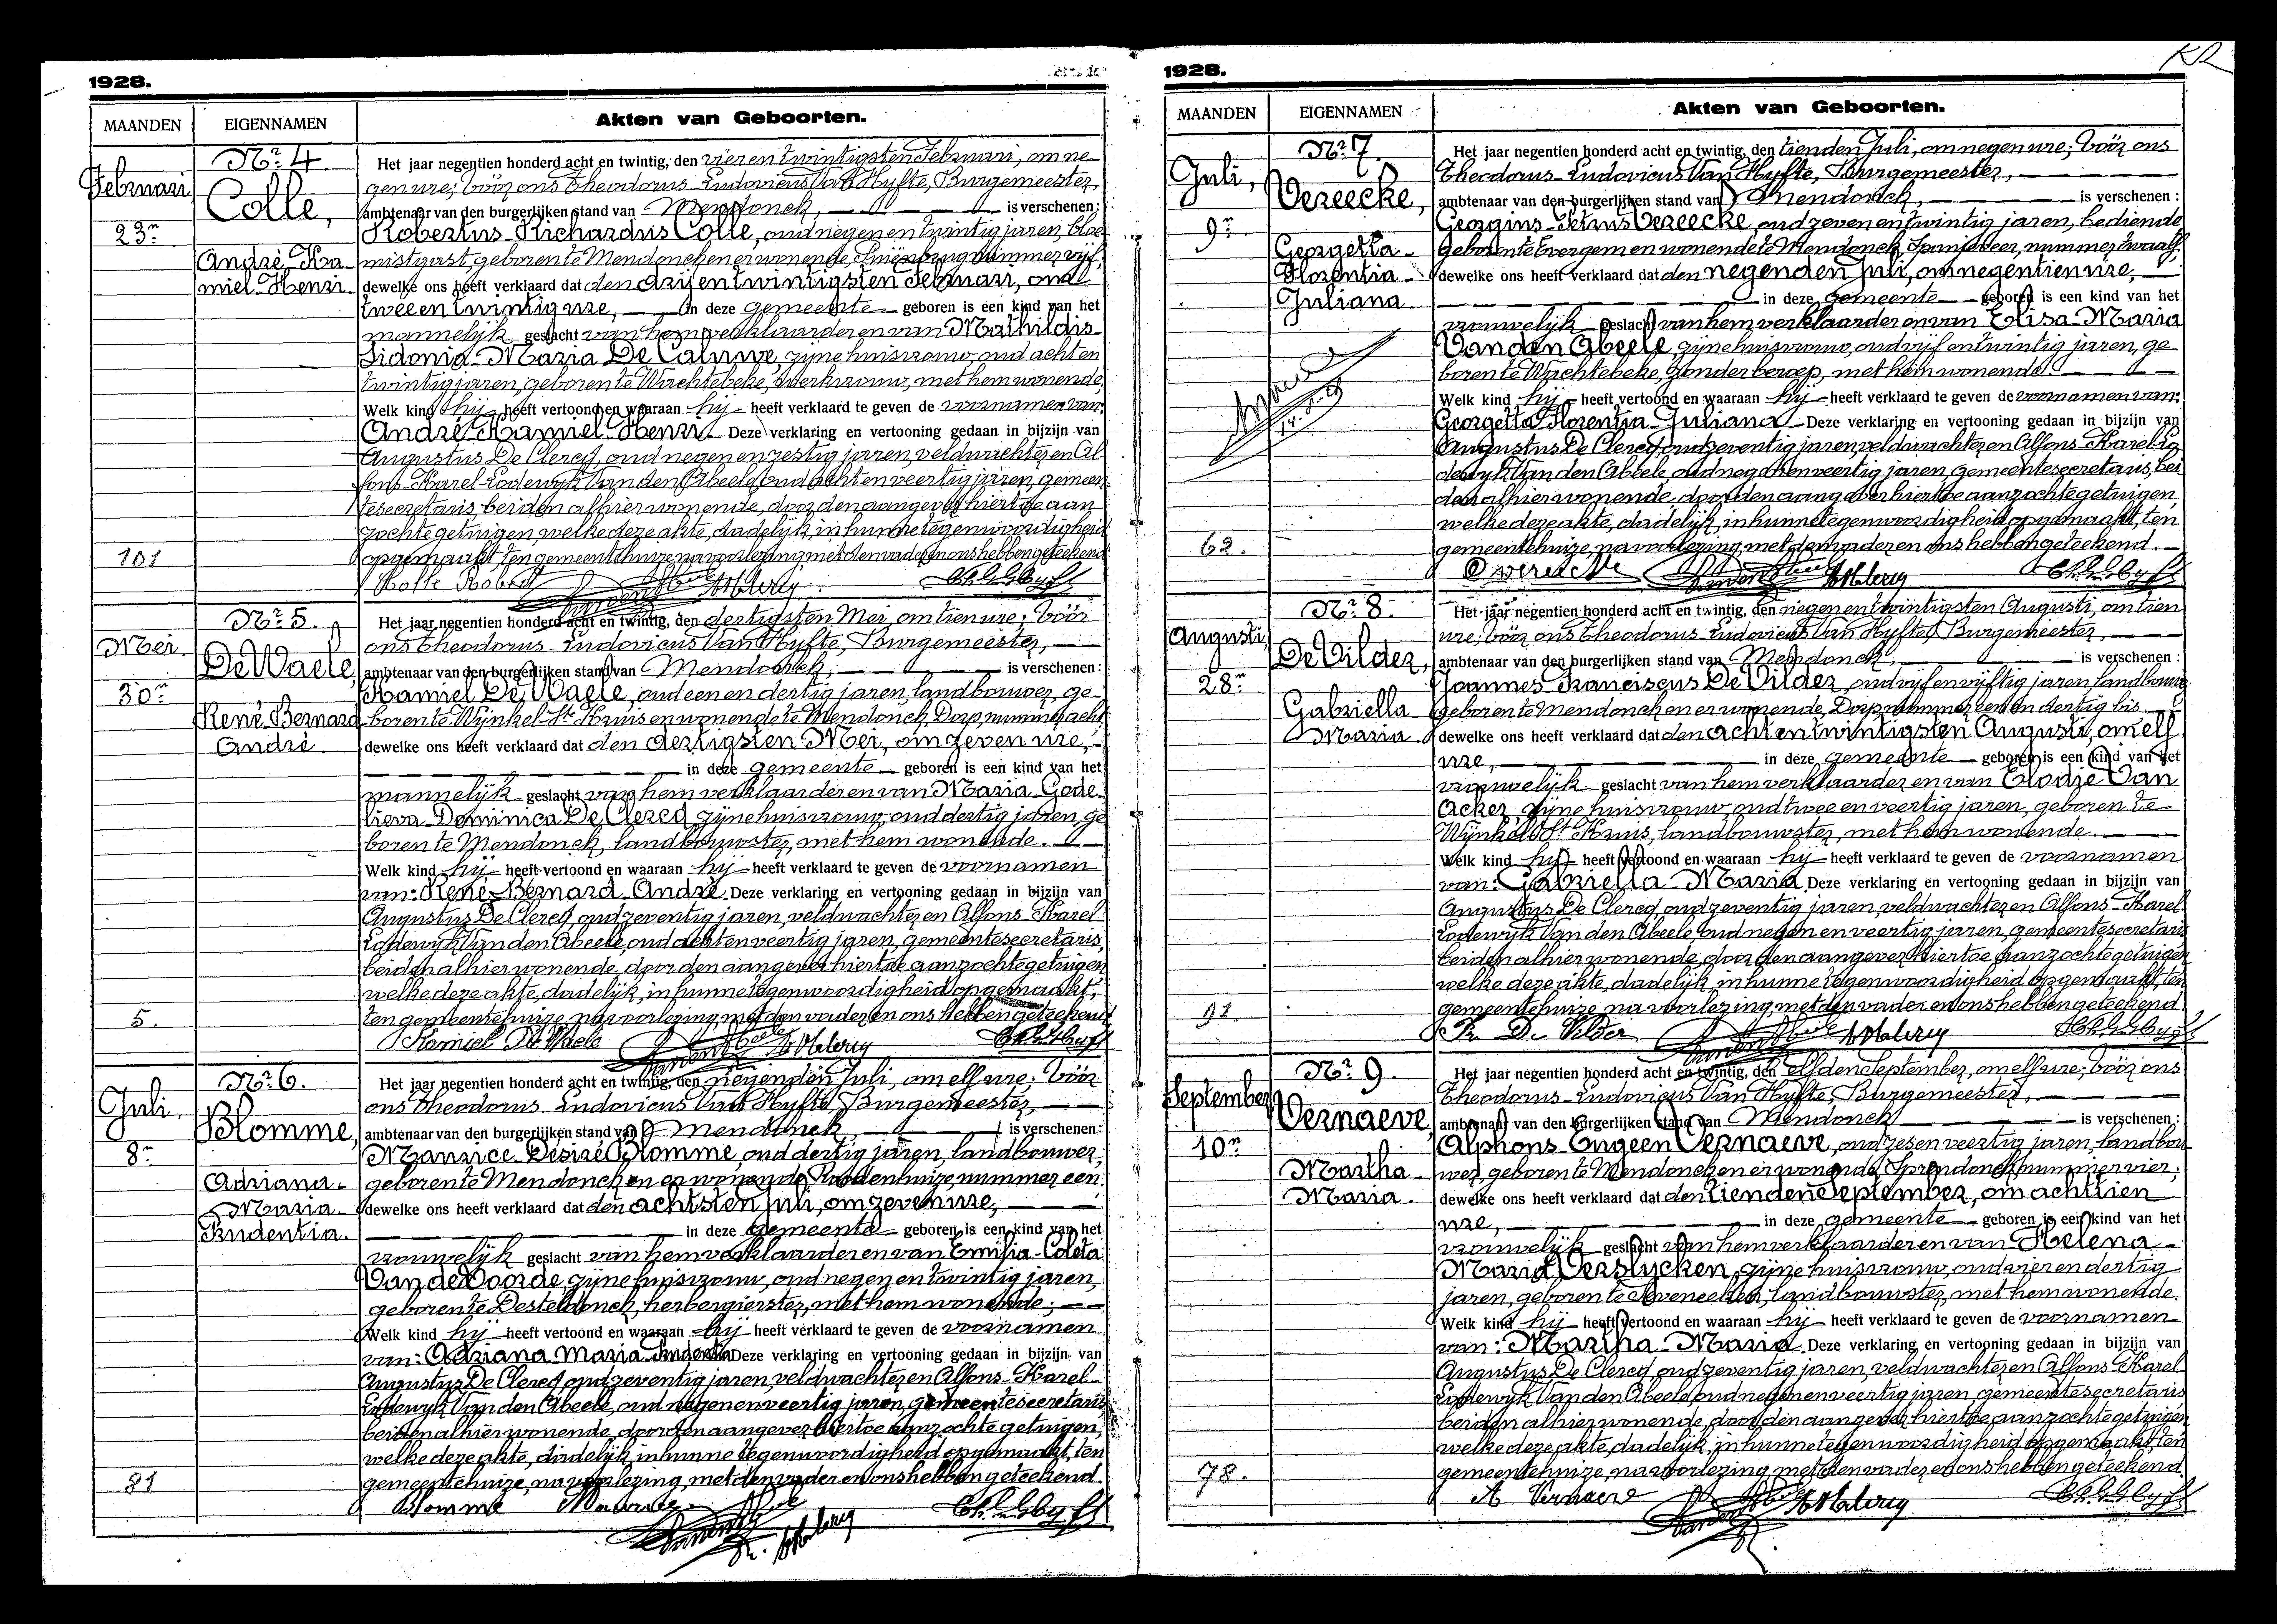 1928.
MAANDEN
EIGENNAMEN
Akten van Geboorten.
Februari
23n
101
Nr 4
Colle,
André-Ka-
miel-Henri.
Het jaar negentien honderd acht en twintig, den vier en twintigsten Februari, om ne-
gen ure; vóór ons Theodorus-Ludovicus Van Hyfte, Burgemeester,
ambtenaar van den burgerlijken stand van Mendonck, is verschenen:
Robertus-Richardus Colle, oud negen en twintig jaren, bloe-
mistgast, geboren te Mendonck en er wonende, nummer vijf,
dewelke ons heeft verklaard dat den drij en twintigsten Februari, om
twee en twintig ure, in deze gemeente geboren is een kind van het
mannelijk geslacht van hem verklaarder en van Mathildis-
Sidonia-Maria De Caluwe, zijne huisvrouw, oud acht en
twintig jaren, geboren te Wachtebeke, werkvrouw, met hem wonende,
Welk kind hij heeft vertoond en waaraan hij heeft verklaard te geven de voornamen van:
André-Kamiel-Henri. Deze verklaring en vertooning gedaan in bijzijn van
Augustus De Clercq, oud negen en zestig jaren, veldwachter en Al-
fons-Karel-Lodewijk Van den Abeele, oud acht en veertig jaren, gemeen-
tesecretaris, beiden alhier wonende, door den aangever hiertoe aan-
zochte getuigen, welke deze akte, dadelijk, in hunne tegenwoordigheid
opgemaakt, ten gemeentehuize, na voorlezing, met den vader en ons hebben geteekend.
Kolle Robert
Mei.
30n
5.
Nr 5.
De Waele,
René-Bernard-
André.
Het jaar negentien honderd acht en twintig, den dertigsten Mei, om tien ure; vóór
ons Theodorus-Ludovicus Van Hyfte, Burgemeester,
ambtenaar van den burgerlijken stand van Mendonck, is verschenen:
Kamiel De Waele, oud een en dertig jaren, landbouwer, ge-
boren te Wijnkel-St Kruis en wonende te Mendonck, Dorp nummer acht
dewelke ons heeft verklaard dat den dertigsten Mei, om zeven ure,
in deze gemeente geboren is een kind van het
mannelijk geslacht van hem verklaarder en van Maria-Gode-
lieva-Dominica De Clercq, zijne huisvrouw, oud dertig jaren, ge-
boren te Mendonck, landbouwster, met hem wonende.
Welk kind hij heeft vertoond en waaraan hij heeft verklaard te geven de voornamen
van: René-Bernard-André. Deze verklaring en vertooning gedaan in bijzijn van
Augustus De Clercq, oud zeventig jaren, veldwachter en Alfons-Karel-
Lodewijk Van den Abeele, oud acht en veertig jaren, gemeentesecretaris,
beiden alhier wonende, door den aangever hiertoe aanzochte getuigen
welke deze akte, dadelijk, in hunne tegenwoordigheid opgemaakt,
ten gemeentehuize, na voorlezing, met den vader en ons hebben geteekend
Kamiel De Waele
Juli.
8n
81
Nr 6.
Blomme,
Adriana-
Maria-
Prudentia.
Het jaar negentien honderd acht en twintig, den negenden Juli, om elf ure; vóór
ons Theodorus-Ludovicus Van Hyfte, Burgemeester,
ambtenaar van den burgerlijken stand van Mendonck, is verschenen:
Maurice-Désiré Blomme, oud dertig jaren, landbouwer,
geboren te Mendonck en er wonende, Roodenhuize, nummer een,
dewelke ons heeft verklaard dat den achtsten Juli, om zeven ure,
in deze gemeente geboren is een kind van het
vrouwelijk geslacht van hem verklaarder en van Emilia-Coleta
Van de Voorde, zijne huisvrouw, oud negen en twintig jaren,
geboren te Desteldonck, herbergierster, met hem wonende;
Welk kind hij heeft vertoond en waaraan hij heeft verklaard te geven de voornamen
van: Adriana-Maria-Prudentia Deze verklaring en vertooning gedaan in bijzijn van
Augustus De Clercq, oud zeventig jaren, veldwachter en Alfons-Karel-
Lodewijk Van den Abeele, oud negen en veertig jaren, gemeentesecretaris,
beiden alhier wonende, door den aangever hiertoe aanzochte getuigen,
welke deze akte, dadelijk, in hunne tegenwoordigheid opgemaakt, ten
gemeentehuize, na voorlezing, met den vader en ons hebben geteekend.
Blomme Maurice
1928.
MAANDEN
EIGENNAMEN
Akten van Geboorten.
Juli,
9n
62.
Nr 7.
Vereecke,
Georgetta-
Florentia-
Juliana
Het jaar negentien honderd acht en twintig, den tienden Juli, om negen ure; vóór ons
Theodorus-Ludovicus Van Hyfte, Burgemeester,
ambtenaar van den burgerlijken stand van Mendonck, is verschenen:
Georgius-Petrus Vereecke, oud zeven en twintig jaren, bediende
geboren te Evergem en wonende te Mendonck, Spanjeveer, nummer twaalf,
dewelke ons heeft verklaard dat den negenden Juli, om negentien ure,
in deze gemeente geboren is een kind van het
vrouwelijk geslacht van hem verklaarder en van Elisa-Maria
Van den Abeele, zijne huisvrouw, oud vijf en twintig jaren, ge-
boren te Wachtebeke, zonder beroep, met hem wonende.
Welk kind hij heeft vertoond en waaraan hij heeft verklaard te geven de voornamen van:
Georgetta-Florentia-Juliana Deze verklaring en vertooning gedaan in bijzijn van
Augustus De Clercq, oud zeventig jaren, veldwachter en Alfons-Karel-Lo-
dewijk Van den Abeele, oud negen en veertig jaren, gemeentesecretaris, bei-
den alhier wonende, door den aangever hiertoe aanzochte getuigen,
welke deze akte, dadelijk, in hunne tegenwoordigheid opgemaakt, ten
gemeentehuize, na voorlezing, met den vader en ons hebben geteekend.
Augusti
28n
91
Nr 8.
De Vilder,
Gabriella-
Maria.
Het jaar negentien honderd acht en twintig, den negen en twintigsten Augusti, om tien
ure; vóór ons Theodorus-Ludovicus Van Hyfte, Burgemeester,
ambtenaar van den burgerlijken stand van Mendonck, is verschenen:
Joannes-Franciscus De Vilder, oud vijf en vijftig jaren, landbouwer
geboren te Mendonck en er wonende, Dorp nummer een en dertig bis
dewelke ons heeft verklaard dat den acht en twintigsten Augusti, om elf
ure, in deze gemeente geboren is een kind van het
vrouwelijk geslacht van hem verklaarder en van Elodie Van
Acker, zijne huisvrouw, oud twee en veertig jaren, geboren te
Wijnkel-St Kruis, landbouwster, met hem wonende.
Welk kind hij heeft vertoond en waaraan hij heeft verklaard te geven de voornamen
van: Gabriella-Maria. Deze verklaring en vertooning gedaan in bijzijn van
Augustus De Clercq, oud zeventig jaren, veldwachter en Alfons-Karel-
Lodewijk Van den Abeele, oud negen en veertig jaren, gemeentesecretaris
beiden alhier wonende, door den aangever hiertoe aanzochte getuigen
welke deze akte, dadelijk, in hunne tegenwoordigheid opgemaakt, ten
gemeentehuize, na voorlezing, met den vader en ons hebben geteekend.
Fr De Vilder
September
10n
78.
Nr 9.
Vernaeve,
Martha-
Maria.
Het jaar negentien honderd acht en twintig, den elfden September, om elf ure; vóór ons
Theodorus-Ludovicus Van Hyfte, Burgemeester,
ambtenaar van den burgerlijken stand van Mendonck is verschenen:
Alphons-Engeen Vernaeve, oud zes en veertig jaren, landbou-
wer, geboren te Mendonck en er wonende, Sprendonck, nummer vier;
dewelke ons heeft verklaard dat den tienden September, om achttien
ure, in deze gemeente geboren is een kind van het
vrouwelijk geslacht van hem verklaarder en van Helena-
Maria Verslycken, zijne huisvrouw, oud vier en dertig
jaren, geboren te Seveneeken, landbouwster, met hem wonende.
Welk kind hij heeft vertoond en waaraan hij heeft verklaard te geven de voornamen
van: Martha-Maria. Deze verklaring en vertooning gedaan in bijzijn van
Augustus De Clercq, oud zeventig jaren, veldwachter en Alfons-Karel
Lodewijk Van den Abeele, oud negen en veertig jaren, gemeentesecretaris
beiden alhier wonende, door den aangever hiertoe aanzochte getuigen
welke deze akte, dadelijk, in hunne tegenwoordigheid opgemaakt, ten
gemeentehuize, na voorlezing, met den vader en ons hebben geteekend.
A Vernaeve